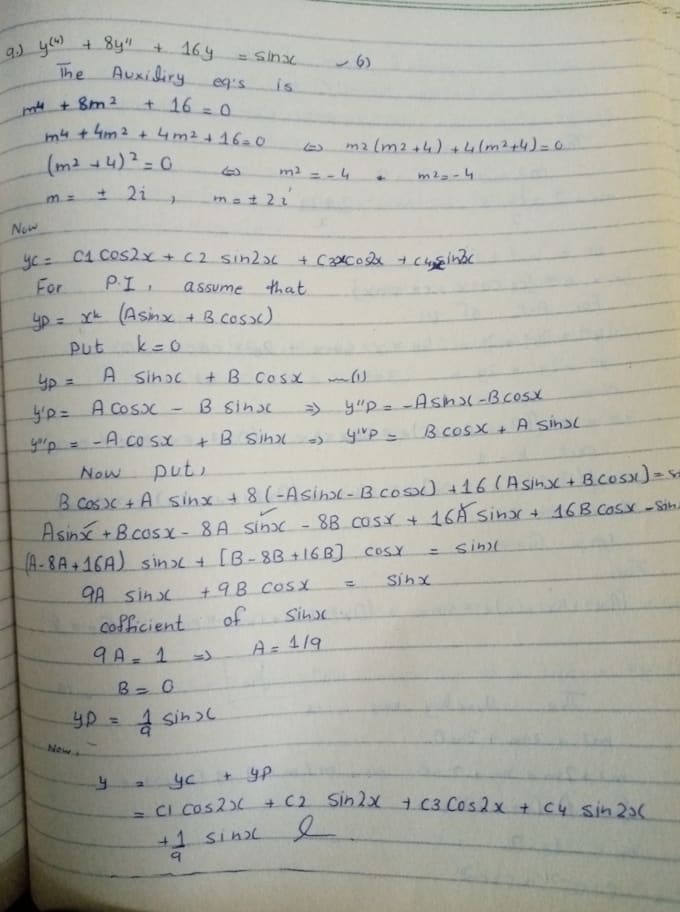 9.) y⁽⁴⁾ + 8y'' + 16y = sinx —(i)
The Auxidiry eq's is
m⁴ + 8m² + 16 = 0
m4 + 4m² + 4m² + 16=0 ⇔ m2(m²+4) + 4(m²+4)=0
(m² +4)² = 0 ⇔ m² = -4 , m²=-4
m = ± 2i , m = ± 2i
Now
yc = C1 cos2x + C2 sin2x + C3xcos2x + C4xsin2x
For P.I, assume that
yp = xᵏ (Asinx + B cosx)
Put k=0
yp = A sinx + B cosx —(1)
y'p = A cosx - B sinx ⇒ y''p = -Asinx-Bcosx
y'''p = -A cosx + B sinx ⇒ yⁱᵛp = B cosx + A sinx
Now put,
B cosx + A sinx + 8(-Asinx-B cosx) + 16(Asinx + Bcosx) = s
Asinx + Bcosx - 8A sinx - 8B cosx + 16A sinx + 16B cosx = sin
(A-8A+16A) sinx + [B-8B+16B] cosx = sinx
9A sinx + 9B cosx = sinx
cofficient of sinx
9A = 1 ⇒ A = 1/9
B = 0
yp = 1/9 sinx
Now,
y = yc + yp
= C1 cos2x + C2 sin2x + C3 Cos2x + C4 sin2x
+ 1/9 sinx